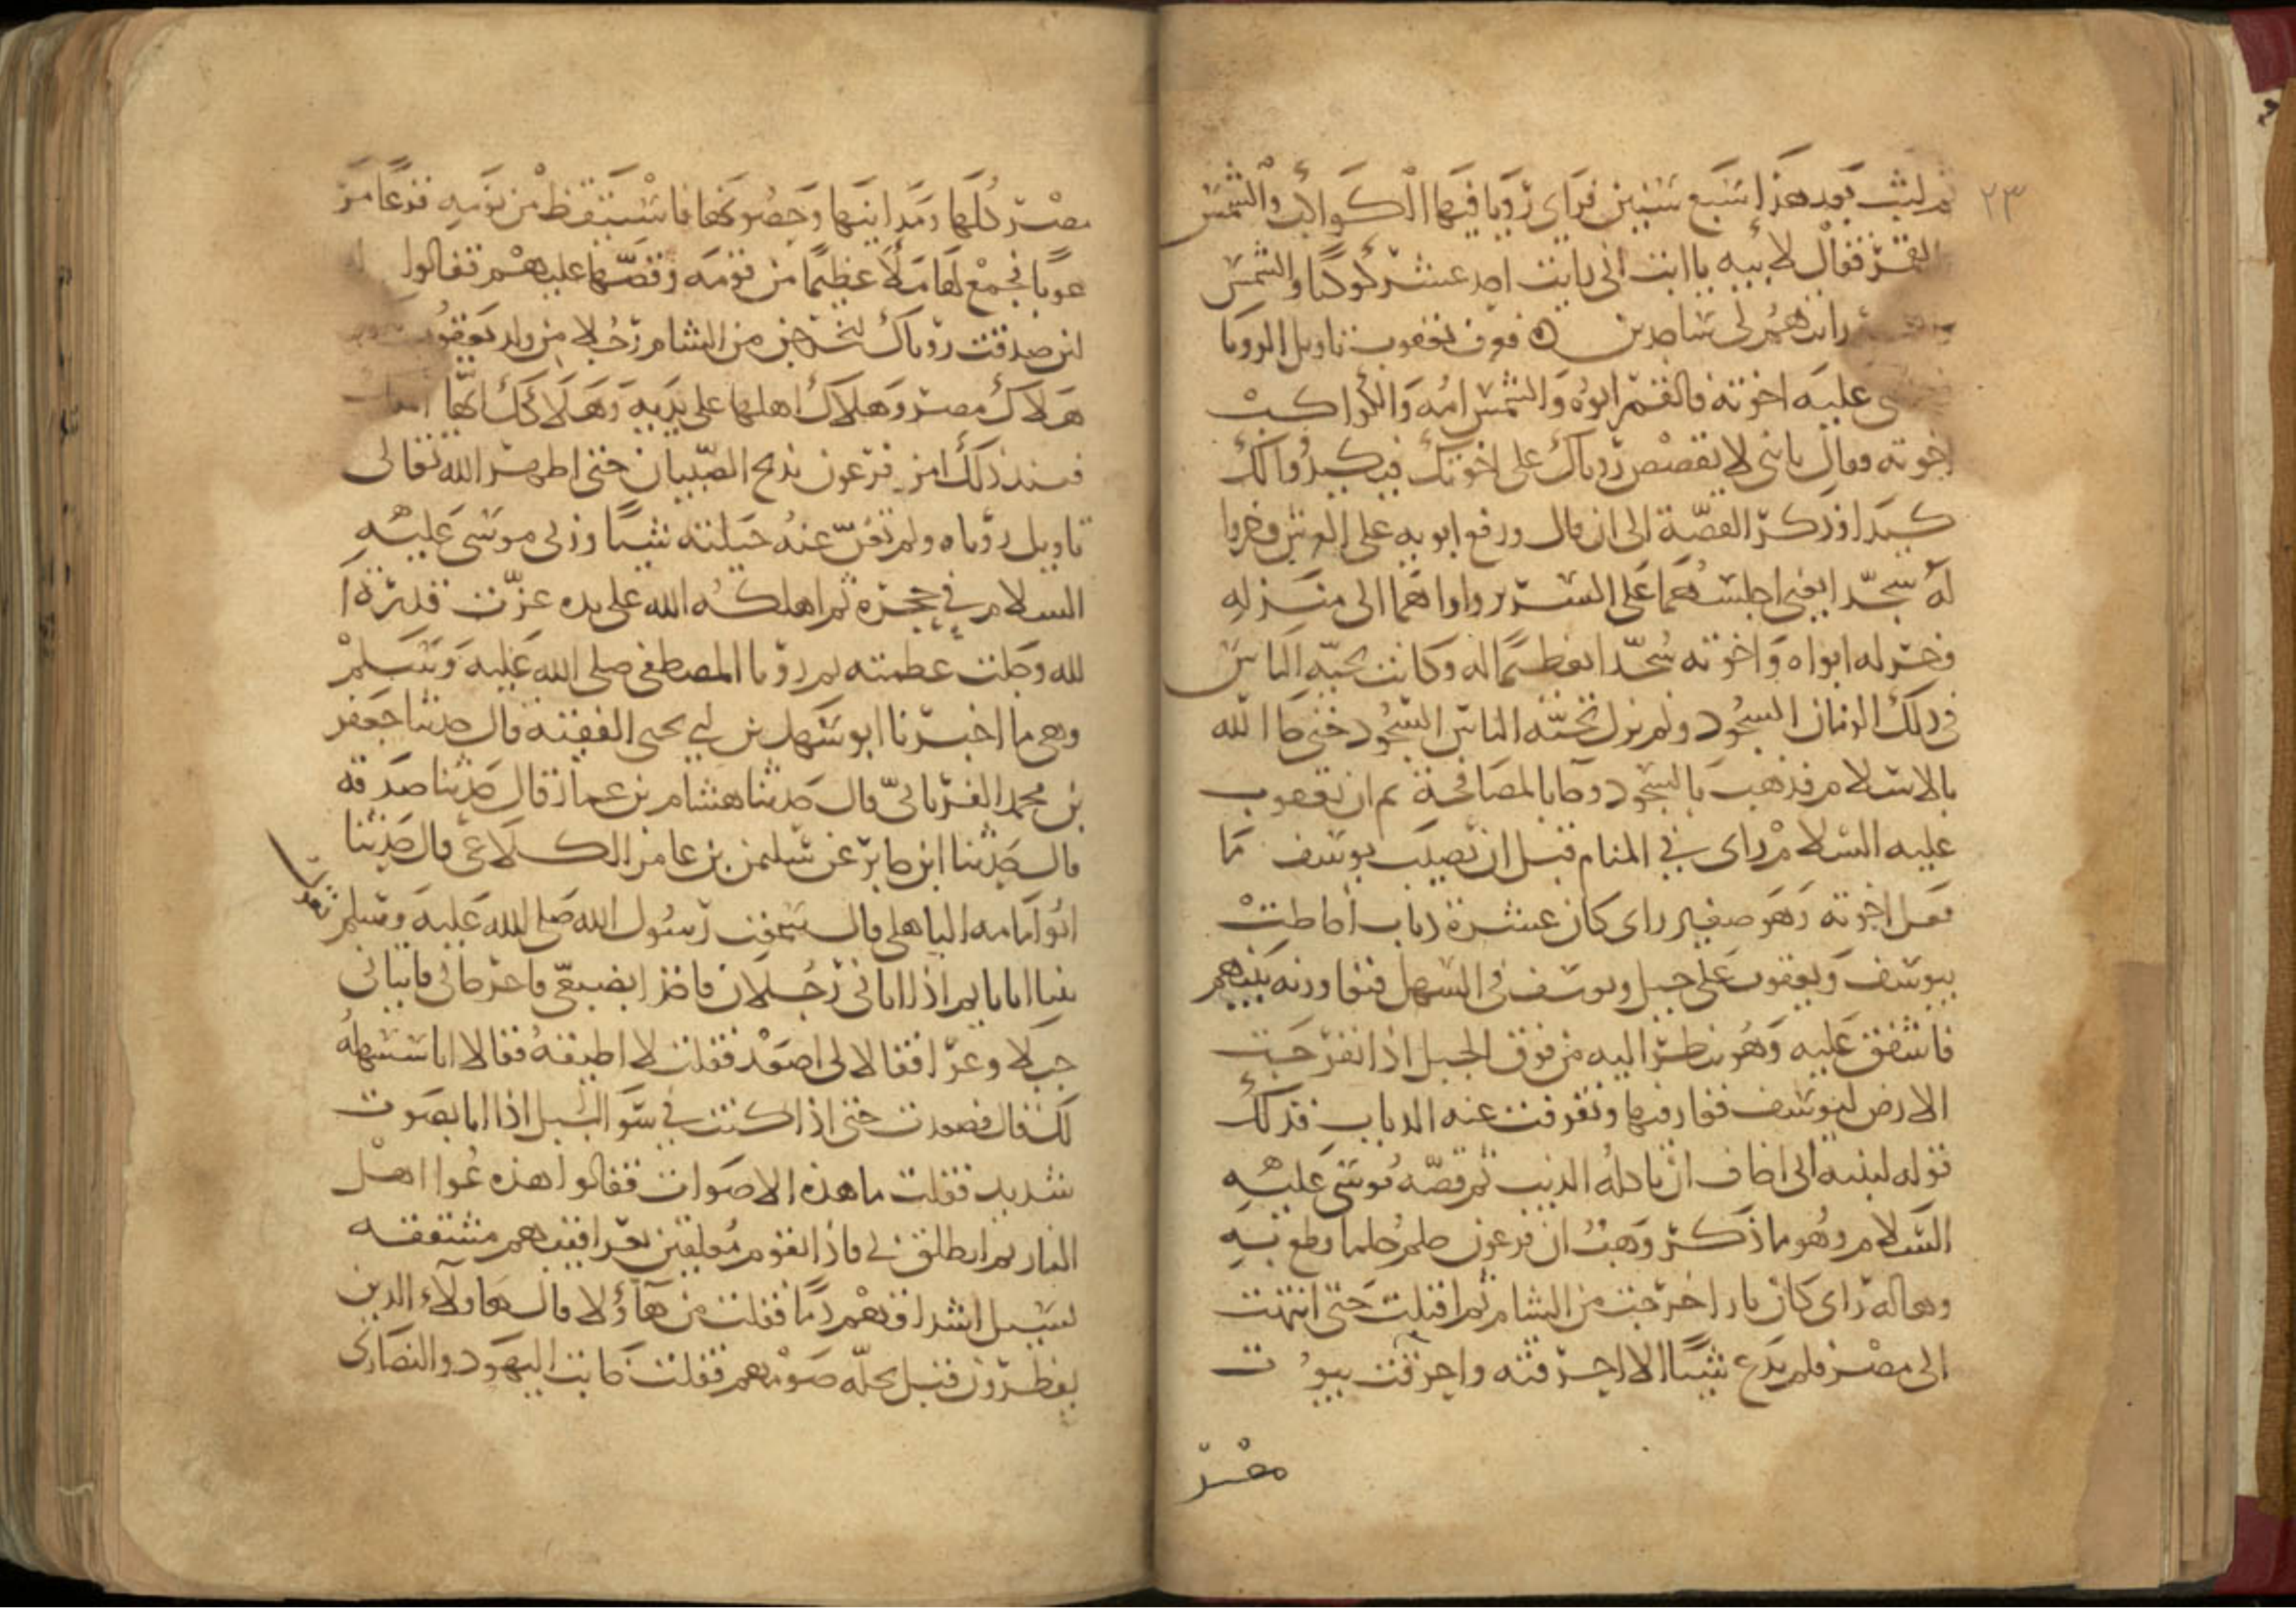 ٢٣
ثم لبث بعد هذا سبع سنين فراى رؤيا فيها الكواكب والشمس
القمر فقال لابيه يا ابت انى رايت احد عشر كوكبا والشمس
رايتهم لى ساجدين فعرف يعقوب تاويل الرويا
على عليه اخوته فالقمر ابوه والشمس امه والكواكب
اخوته فقال يا بنى لا تقصص روياك على اخوتك فيكيدوا لك
كيدا وذكر القصة الى ان قال ورفع ابويه على العرش وخروا
له سجدا يعنى اجلسهما على السرير واواهما الى منزله
وخر له ابواه واخوته سجدا تعظيما له وكانت تحية الناس
فى ذلك الزمان السجود ولم يزل تحية الناس السجود حتى جا الله
بالاسلام فذهب بالسجود وجا بالمصافحة ثم ان يعقوب
عليه السلام راى في المنام قبل ان يصيب يوسف ما
فعل اخوته وهو صغير راى كان عشرة ذياب احاطت
بيوسف ويعقوب على جبل ويوسف فى السهل فتعاورنه بينهم
فاشفق عليه وهو ينظر اليه من فوق الجبل اذ انفرجت
الارض ليوسف فغار فيها وتفرقت عنه الذياب فذلك
قوله لبنيه انى اخاف ان ياكله الذيب ثم قصة موسى عليه
السلام وهو ما ذكر وهب ان فرعون حلم حلما قطع به
وهاله راى كان نارا خرجت من الشام ثم اقبلت حتى انتهت
الى مصر فلم يدع شيا الا احرقته واحرقت بيوت
مصر
مصر كلها ومداينها وحصونها فاستيقظ من نومه فزعا مر
عوبا فجمع لها ملأ عظيما من قومه وقصها عليهم فقالوا
لين صدقت روياك ليخرجن من الشام رجلا من ولد يعقوب
هلاك مصر وهلاك اهلها على يديه وهلاكك ايها
فعند ذلك امر فرعون بذبح الصبيان حتى اظهر الله تعالى
تاويل روياه ولم تغن عنه حيلته شيا وربى موسى عليه
السلام في حجره ثم اهلكه الله على يده عزت قدرة ا
لله وجلت عظمته ثم رويا المصطفى صلى الله عليه وسلم
وهى ما اخبرنا ابو سهل بن ابي يحيى الفقيه قال حدثنا جعفر
بن محمد الفريابي قال حدثنا هشام بن عمار قال حدثنا صدقة
قال حدثنا ابن جابر عن سليمن بن عامر الكلاعى قال حدثنا
ابو امامه الباهلى قال سمعت رسول الله صلى الله عليه وسلم يقول
بينا انا نايم اذ اتانى رجلان فاخذا بضبعى فاخرجانى فاتيانى
جبلا وعرا فقالا لى اصعد فقلت لا اطيقه فقالا انا سنسهله
لك قال فصعدت حتى اذا كنت في سوا الجبل اذا انا بصوت
شديد فقلت ما هذه الاصوات فقالوا هذه عوا اهل
النار ثم انطلق بى فاذا بقوم معلقين بعراقيبهم مشققه
تسيل اشداقهم دما فقلت من هآؤلا قال هاولاء الذين
يفطرون قبل تحلة صومهم فقلت خابت اليهود والنصارى